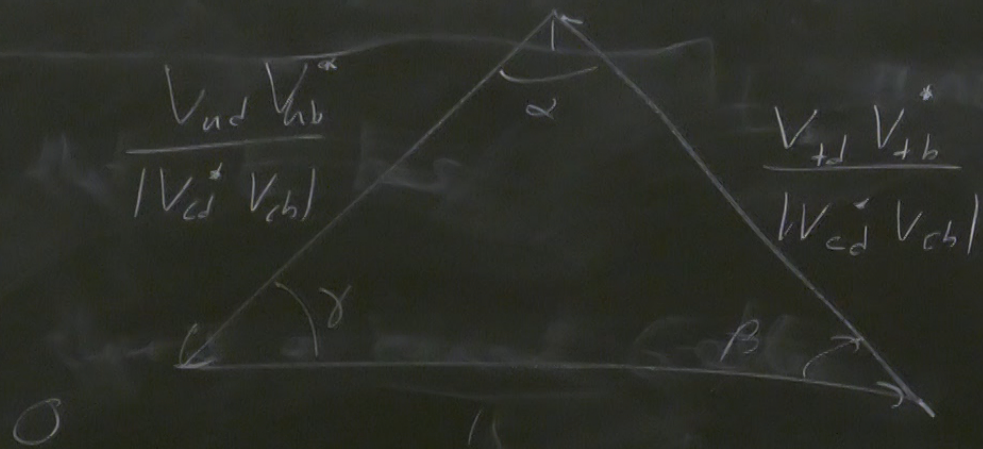 V_{ud} V_{ub}^*
|V_{cd}^* V_{cb}|
α
V_{td} V_{tb}^*
|V_{cd}^* V_{cb}|
γ
β
0